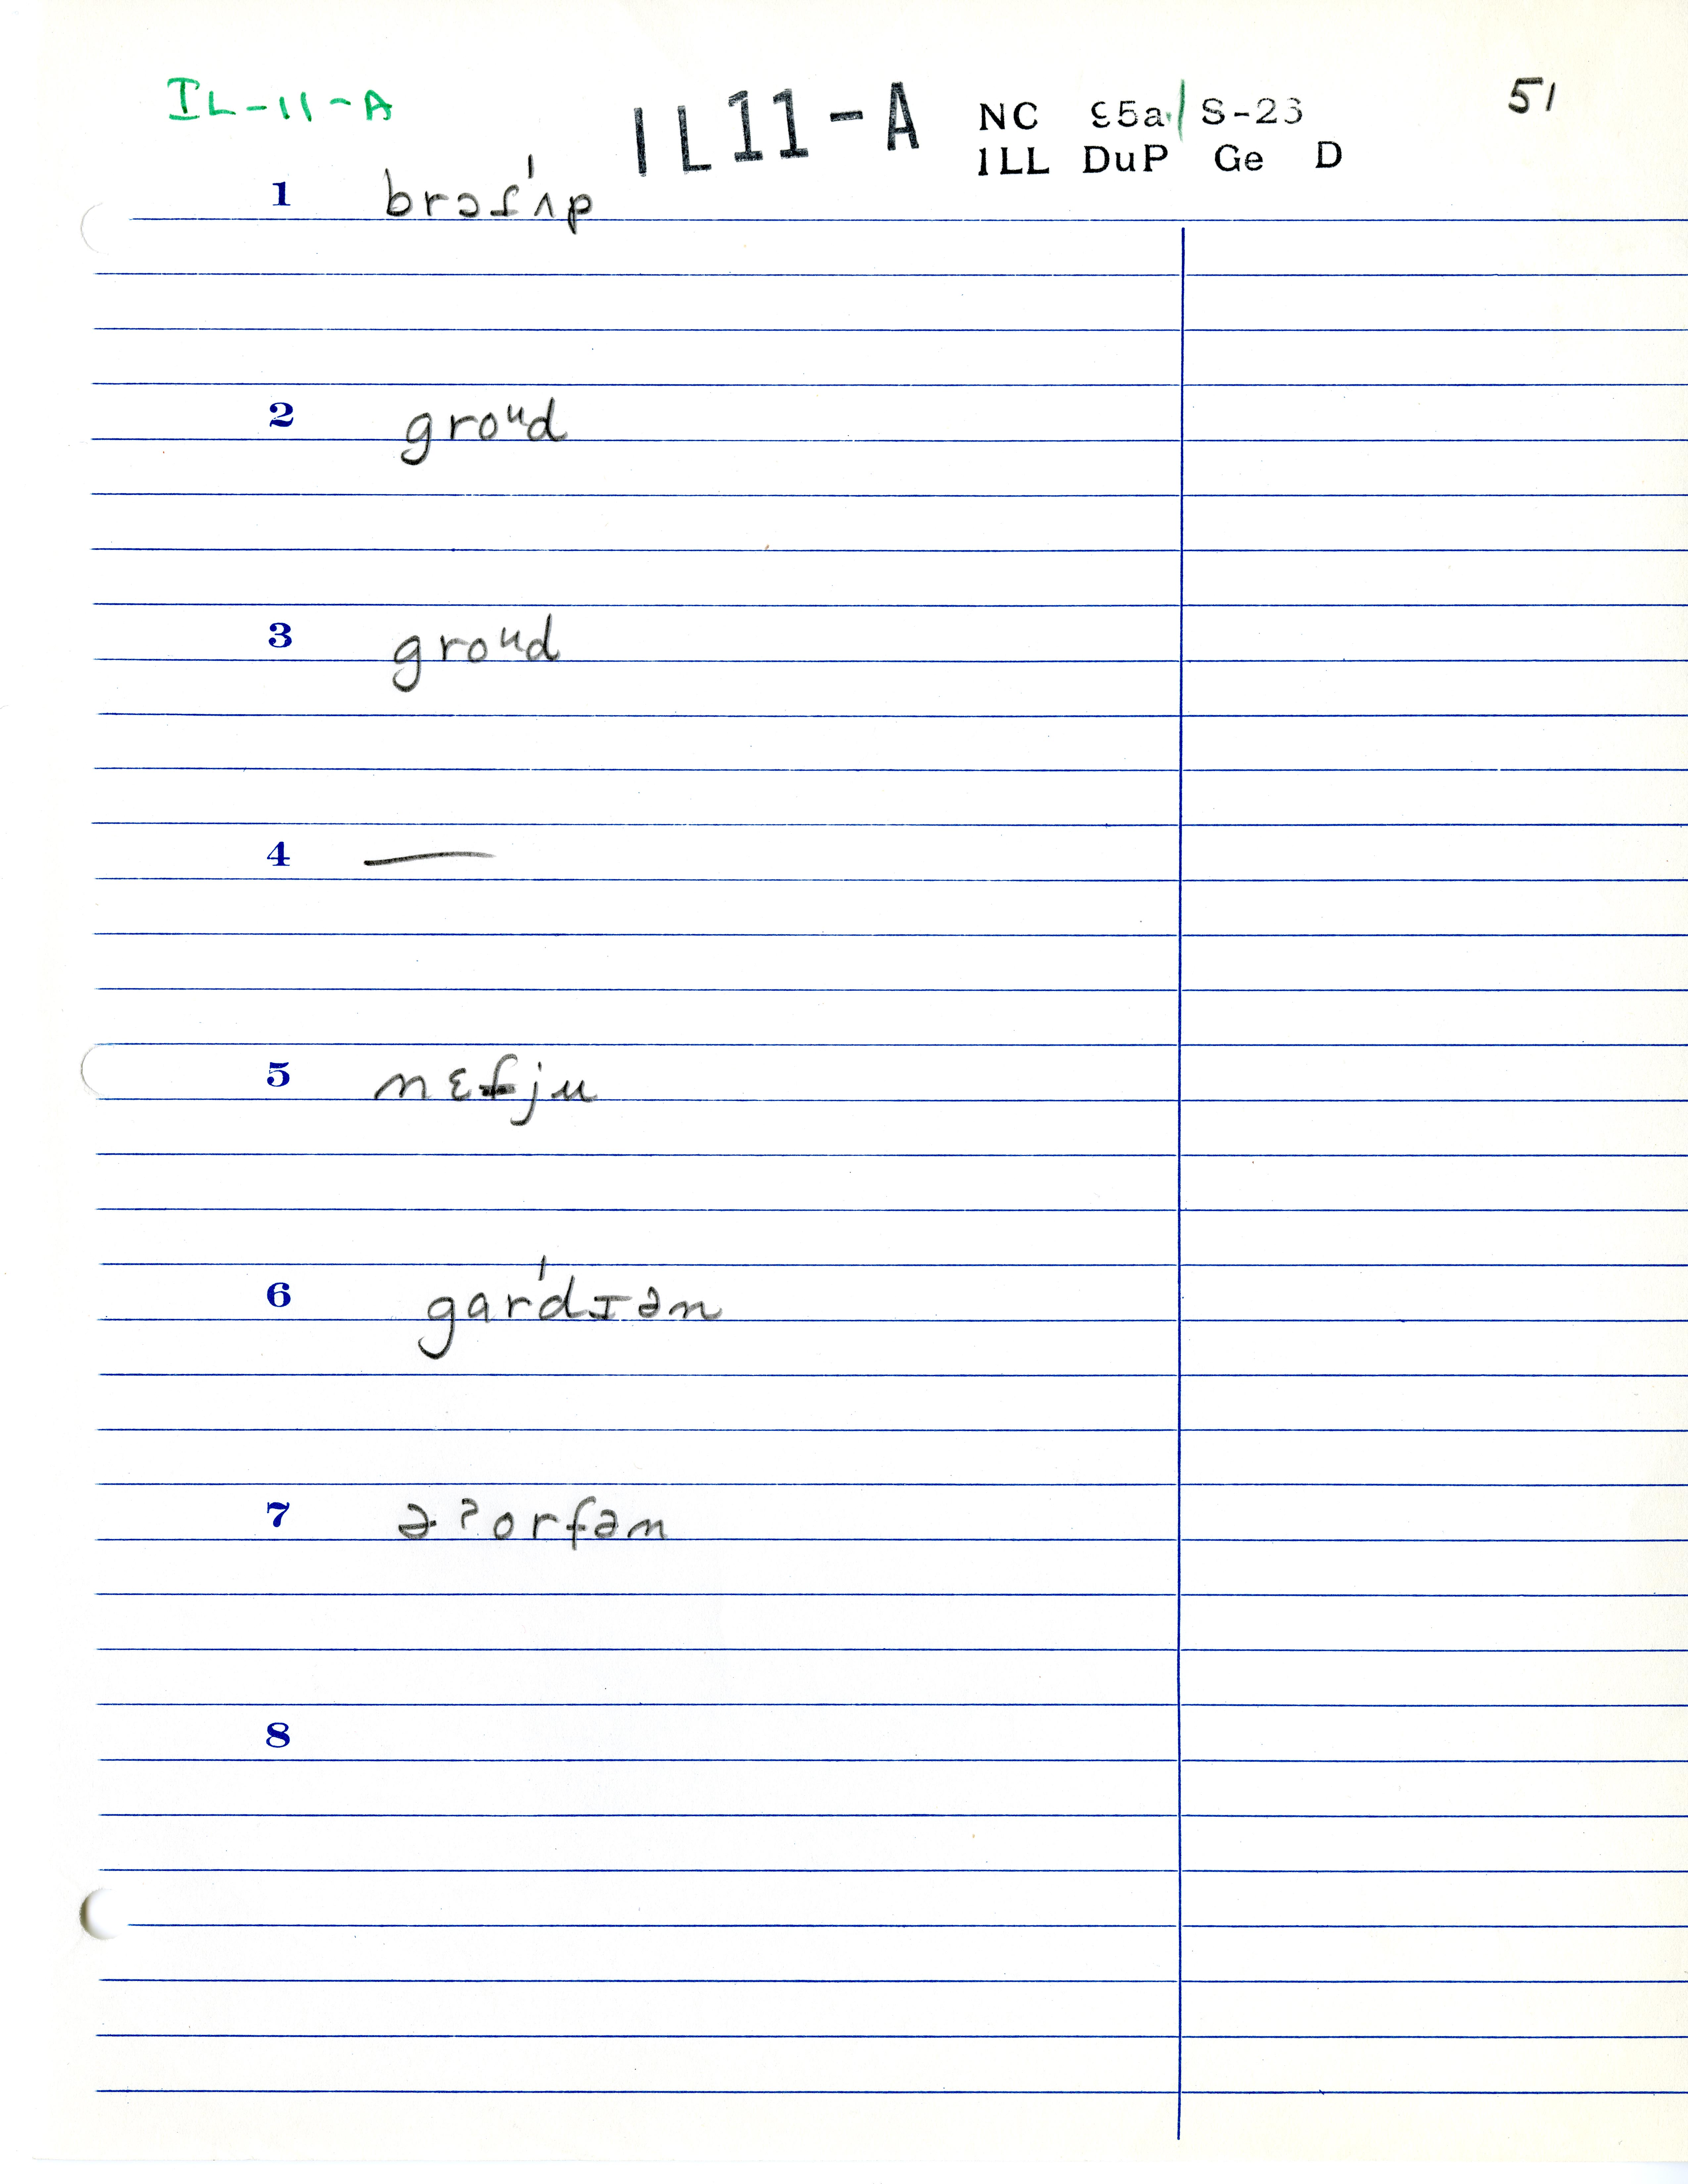 IL-11-A IL11-A NC 95a/S-23 51
ILL DuP Ge D
1 brɔɾʌ́p
2 groᵘd
3 groᵘd
4 —
5 nɛfju
6 gar'dɪən
7 əʔorfən
8